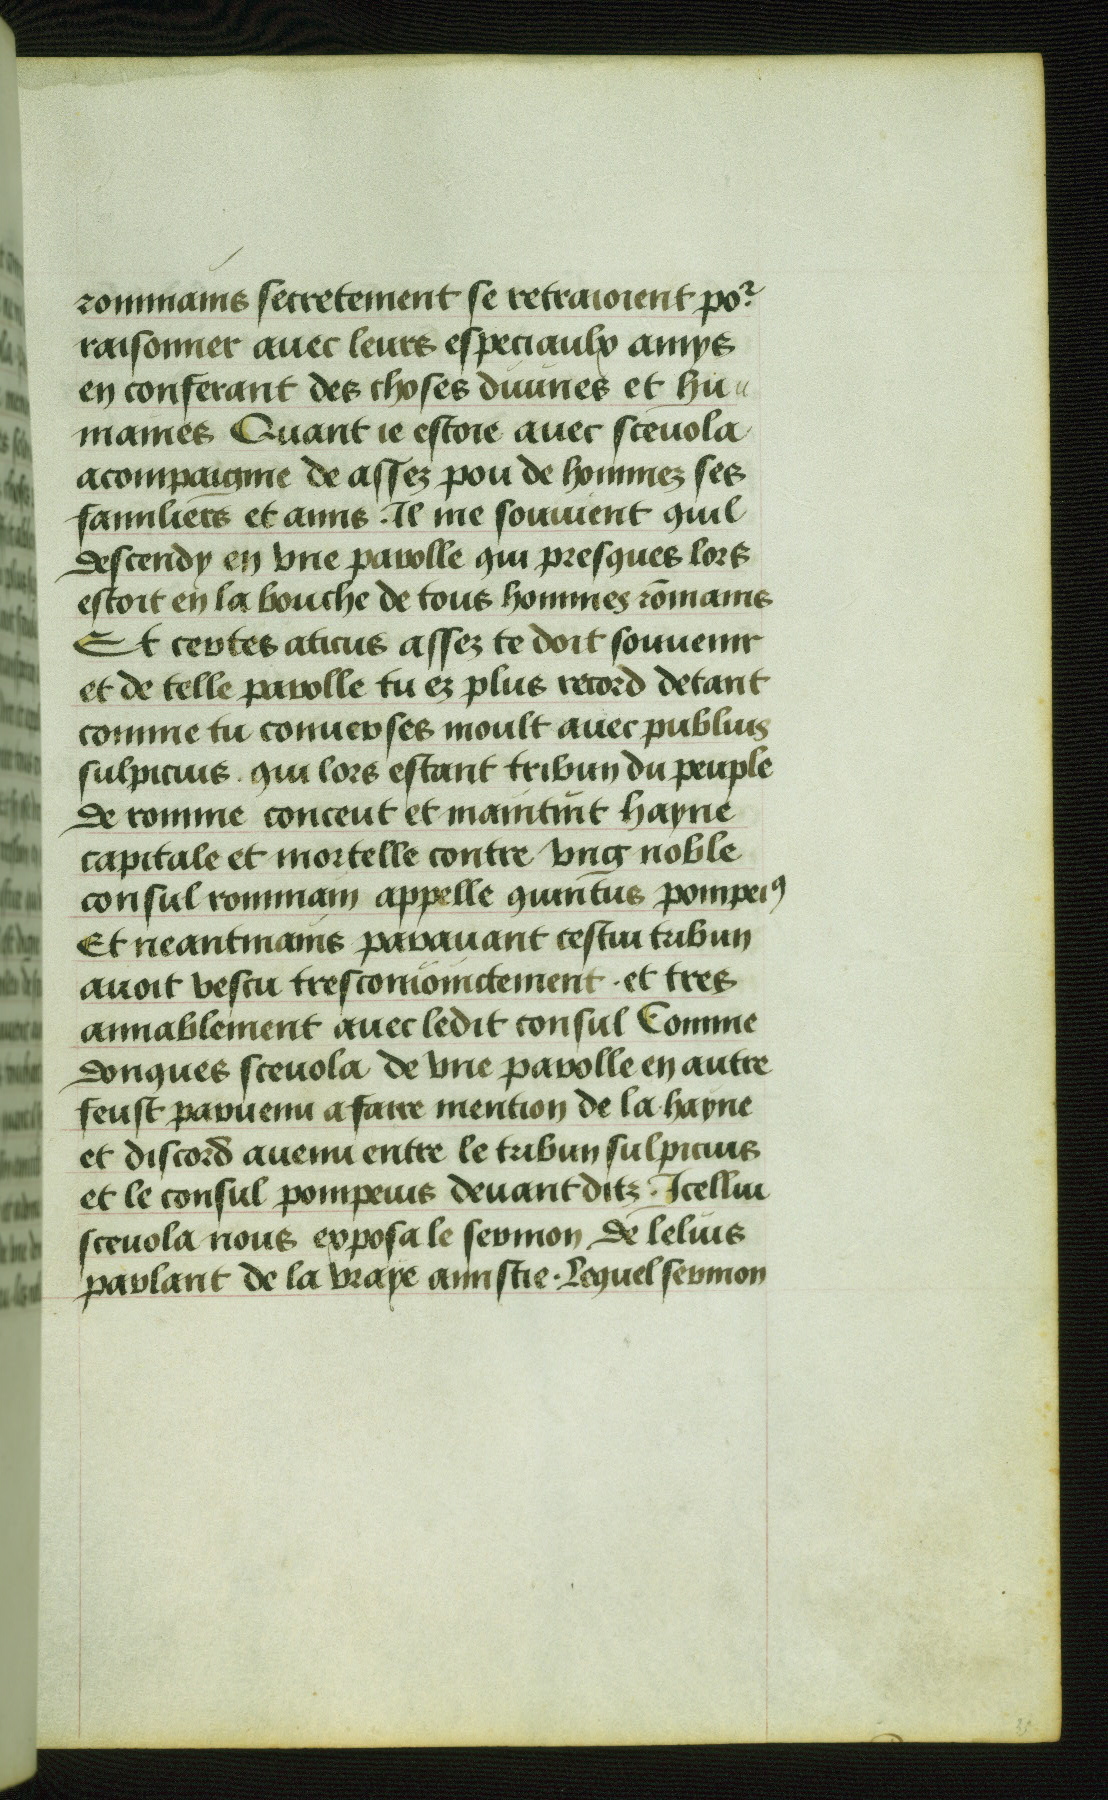 rommains secretement se retraioient por
raisonner auec leurs especiaulx amys
en conferant des choses diuines et hu
maines Quant ie estoie auec sceuola
acompaigne de assez pou de hommez ses
familiers et amis . Il me souuient quil
descendy en vne parolle qui presques lors
estoit en la bouche de tous hommes rōmains
Et certes aticus assez te doit souuenir
et de telle parolle tu ez plus record detant
comme tu conuerses moult auec publius
sulpicius . qui lors estant tribun du peuple
de romme conceut et maintint hayne
capitale et mortelle contre vng noble
consul rommain appelle quintus pompeiꝰ
Et neantmains parauant cestui tribun
auoit vescu tresconioinctement . et tres
amiablement auec ledit consul Comme
donques sceuola de vne parolle en autre
feust paruenu a faire mention de la hayne
et discord auenu entre le tribun sulpicius
et le consul pompeius deuant ditz . Icellui
sceuola nous exposa le sermon de lelius
parlant de la vraye amistie . Lequel sermon